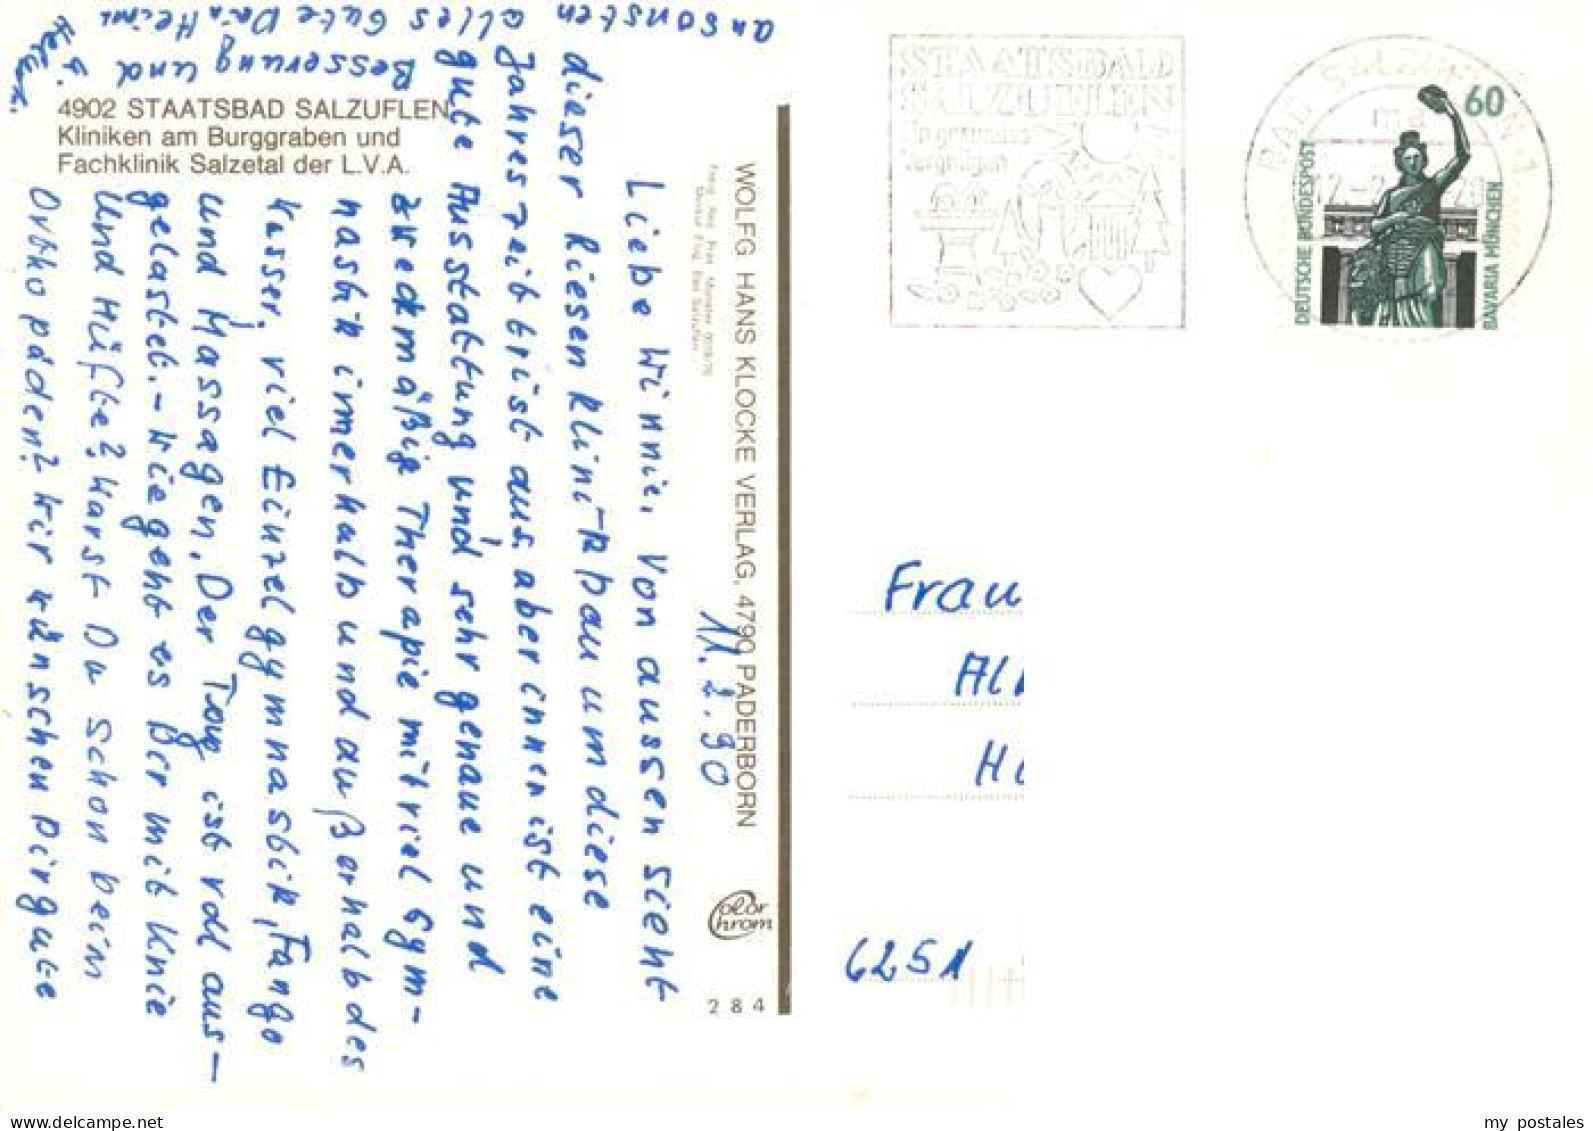 4902 STAATSBAD SALZUFLEN
Kliniken am Burggraben und
Fachklinik Salzetal der L.V.A.
WOLFG HANS KLOCKE VERLAG, 4790 PADERBORN
Color
Chrom
284
11.2.90
Liebe Winnie. Von aussen sieht
dieser Riesen Klinikbau um diese
Jahreszeit trist aus, aber innen ist eine
gute Ausstattung und sehr genaue und
zweckmäßige Therapie mit viel Gym-
nastik innerhalb und außerhalb des
Wasser, viel Einzelgymnastik, Fango
und Massagen. Der Tag ist voll aus-
gelastet. - Wie geht es Dir mit Knie
und Hüfte? Warst Du schon beim
Orthopäden? Wir wünschen Dir gute
Besserung und
ansonsten alles Gute Dein Heinz
STAATSBAD
SALZUFLEN
Ein gesundes
Vergnügen
BAD SALZUFLEN 1
60
DEUTSCHE BUNDESPOST
BAVARIA MÜNCHEN
Frau
6251
my postales